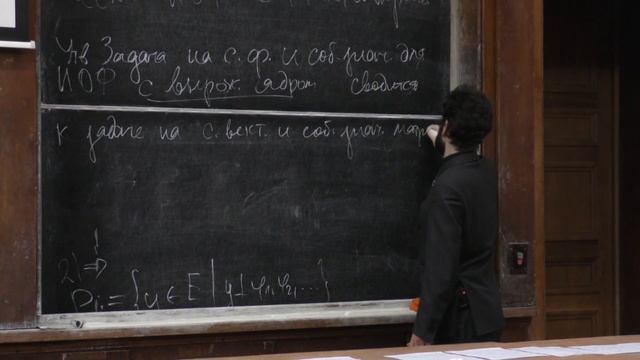 Утв Задача на с.ф. и соб. знач. для
ИОФ с вырож. ядром сводится
к задаче на с. вект. и соб. знач. матр
2) ⇒
= {y ∈ E | y ⊥ φ₁, φ₂, ...}